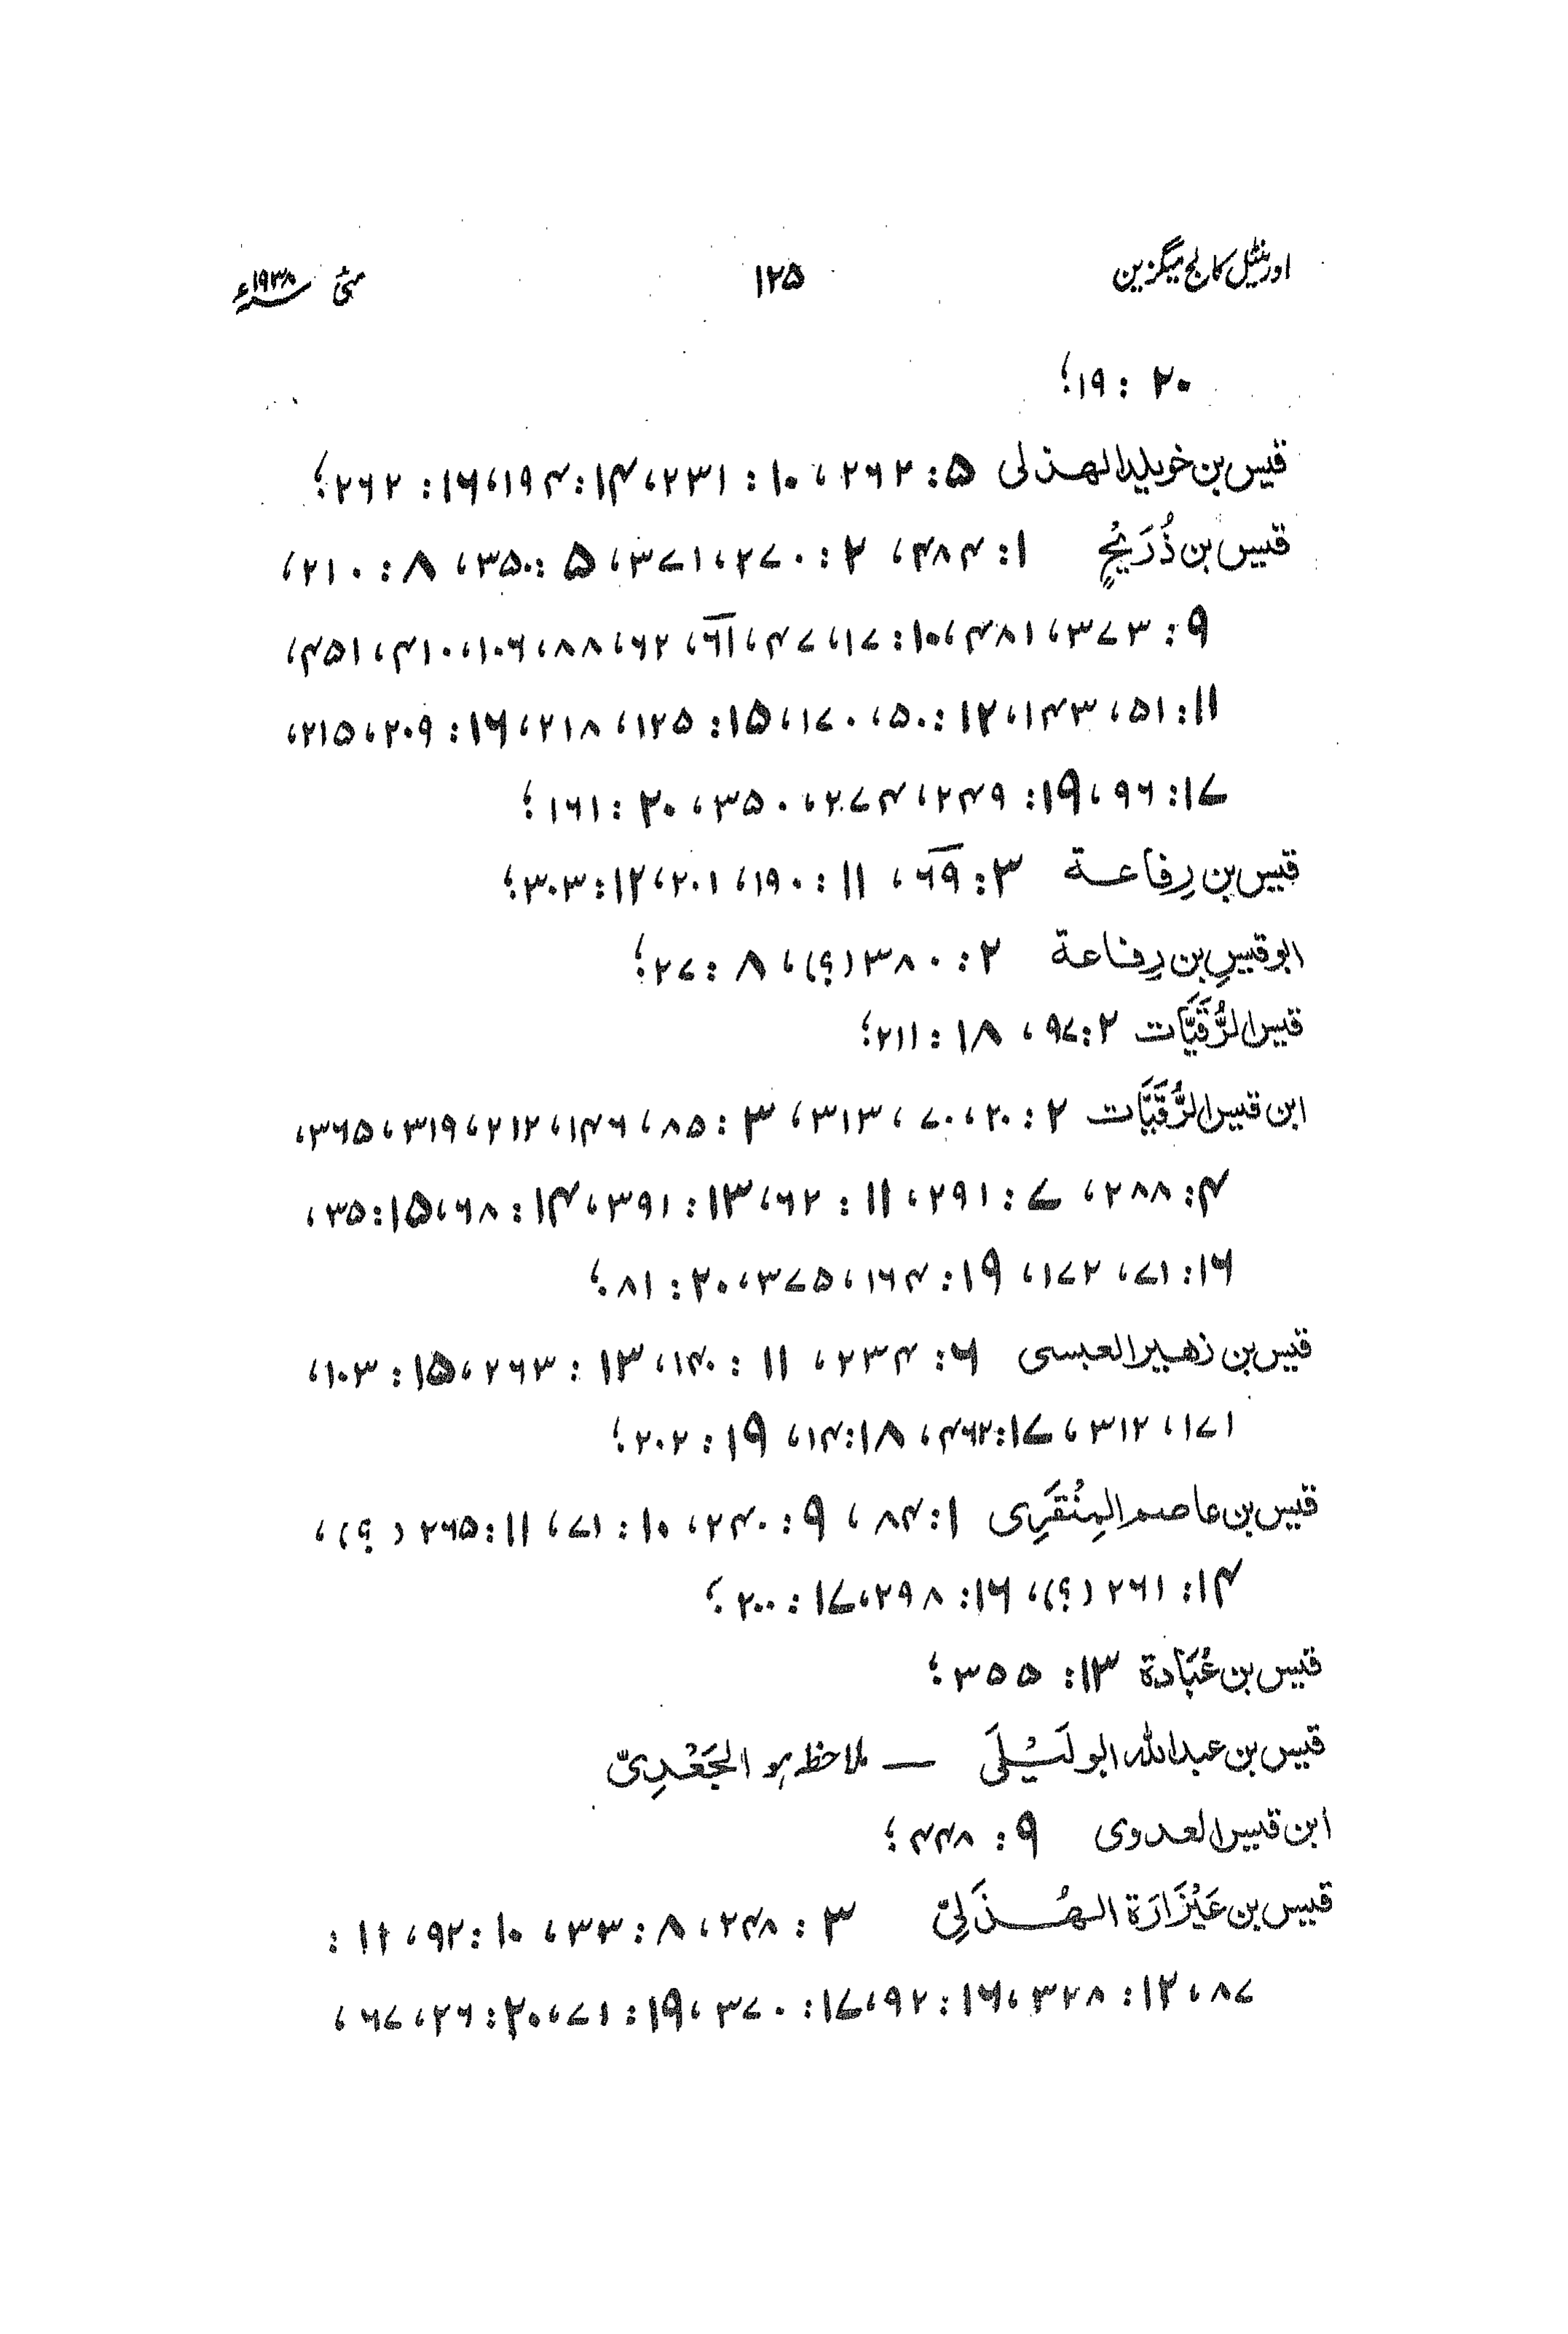 اورینٹیل کالج میگزین ۱۲۵ مئی ۱۹۳۸ء
۲۰ : ۱۹؛
قیس بن خویلد الهذلی ۵: ۲۶۲، ۱۰: ۲۳۱، ۱۴: ۱۹۴، ۱۶: ۲۶۲؛
قیس بن ذُرَیْحٍ ۱: ۴۸۴، ۲: ۲۷۰، ۳۷۱، ۵: ۳۵۰، ۸: ۲۱۰،
۹: ۳۷۳، ۴۸۱، ۱۰: ۱۷، ۴۷، ۶۱، ۶۲، ۸۸، ۱۰۶، ۴۱۰، ۴۵۱،
۱۱: ۵۱، ۱۴۳، ۱۲: ۵۰، ۱۷۰، ۱۵: ۱۲۵، ۲۱۸، ۱۶: ۲۰۹، ۲۱۵،
۱۷: ۹۶، ۱۹: ۲۴۹، ۲۷۴، ۳۵۰، ۲۰: ۱۶۱؛
قیس بن رِفاعة ۳: ۶۹، ۱۱: ۱۹۰، ۲۰۱، ۱۲: ۳۰۳؛
ابو قیس بن رِفاعة ۲: ۳۸۰ (؟)، ۸: ۲۷؛
قیس الرُّقَیَّات ۲: ۹۷، ۱۸: ۲۱۱؛
ابن قیس الرُّقَیَّات ۲: ۲۰، ۷۰، ۳۱۳، ۳: ۸۵، ۱۴۶، ۲۱۲، ۳۱۹، ۳۶۵،
۴: ۲۸۸، ۷: ۲۹۱، ۱۱: ۶۲، ۱۳: ۳۹۱، ۱۴: ۶۸، ۱۵: ۳۵،
۱۶: ۷۱، ۱۷۲، ۱۹: ۱۶۴، ۳۷۵، ۲۰: ۸۱؛
قیس بن زهیر العبسی ۶: ۲۳۴، ۱۱: ۱۴۰، ۱۳: ۲۶۳، ۱۵: ۱۰۳،
۱۷۱، ۳۱۲، ۱۷: ۴۶۲، ۱۸: ۱۴، ۱۹: ۲۰۲؛
قیس بن عاصم المِنْقَرِی ۱: ۸۴، ۹: ۲۴۰، ۱۰: ۷۱، ۱۱: ۲۶۵ (؟)،
۱۴: ۲۶۱ (؟)، ۱۶: ۲۹۸، ۱۷: ۲۰۰؛
قیس بن عُبَادة ۱۳: ۳۵۵؛
قیس بن عبد الله ابو لَیْلَی — ملاحظہ ہو الجَعْدِیّ
ابن قیس العدوی ۹: ۴۴۸؛
قیس بن عَیْزَارَة الهُذَلِیّ ۳: ۲۴۸، ۸: ۳۳، ۱۰: ۹۲، ۱۱:
۸۷، ۱۲: ۳۲۸، ۱۶: ۹۲، ۱۷: ۳۷۰، ۱۹: ۷۱، ۲۰: ۲۶، ۶۷،